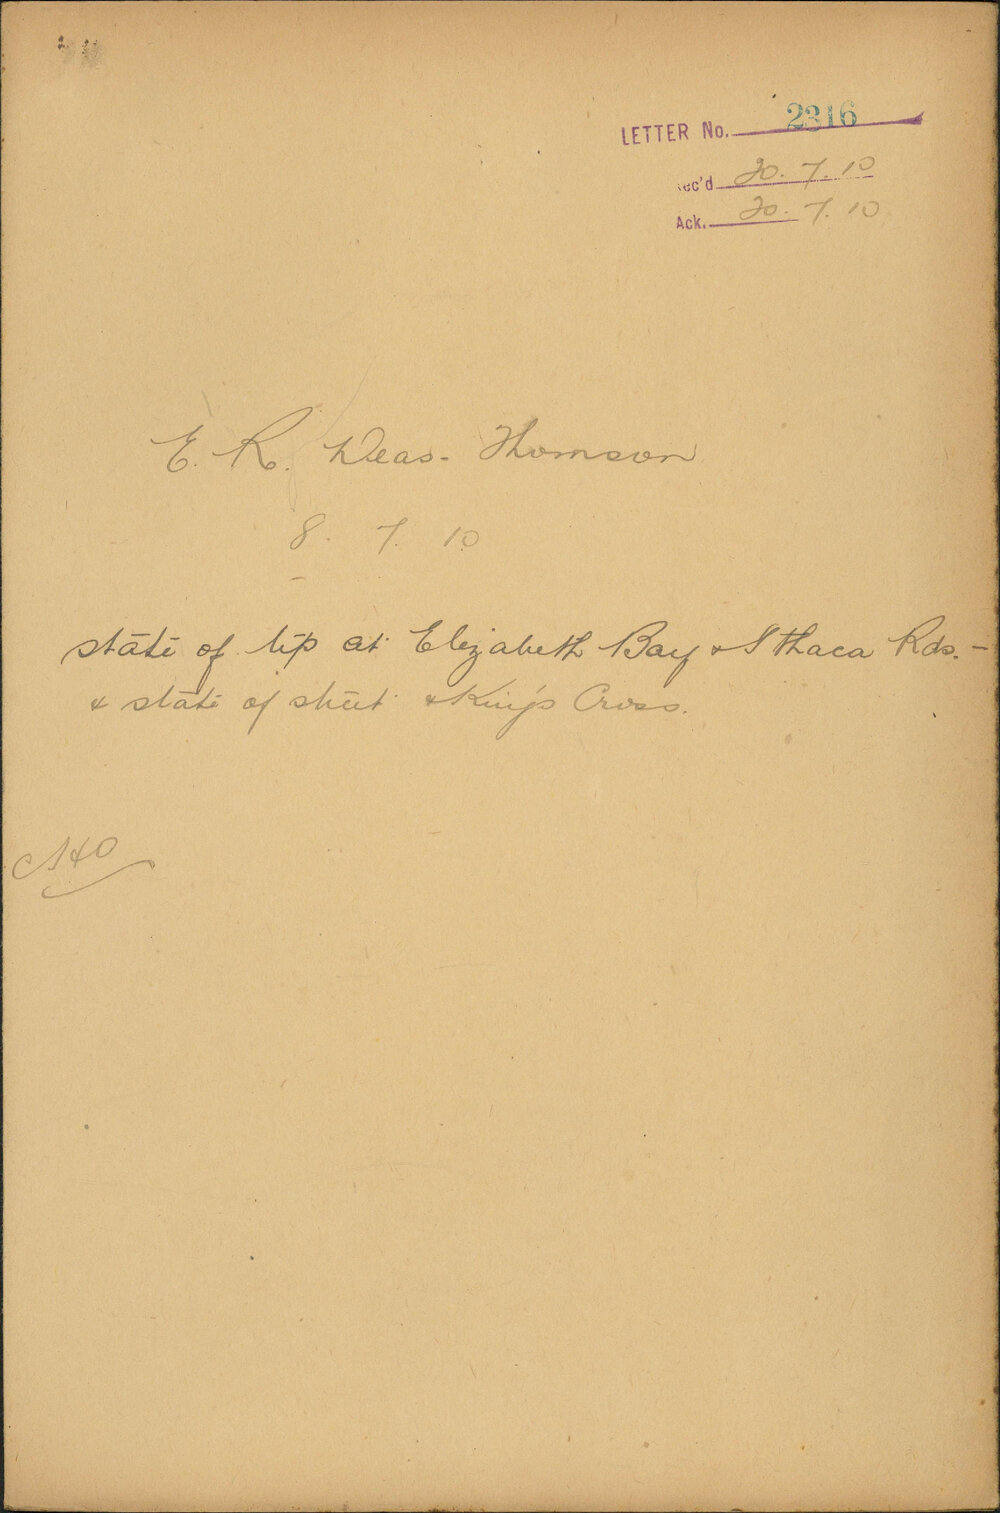 LETTER No. 2316
Rec'd 20.7.10
Ack. 20.7.10
E. R. Deas-Thomson
8. 7. 10
state of tip at Elizabeth Bay & Ithaca Rds. -
& state of street & King's Cross.